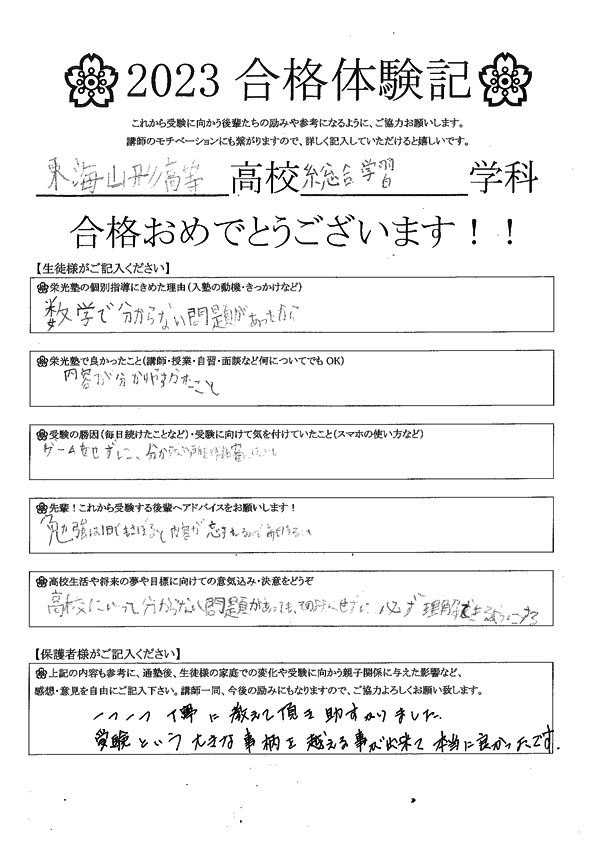 2023 合格体験記
これから受験に向かう後輩たちの励みや参考になるように、ご協力お願いします。
講師のモチベーションにも繋がりますので、詳しく記入していただけると嬉しいです。
東海山形高等 高校 総合学習 学科
合格おめでとうございます！！
【生徒様がご記入ください】
栄光塾の個別指導にきめた理由（入塾の動機・きっかけなど）
数学で分からない問題があったから
栄光塾で良かったこと（講師・授業・自習・面談など何についてでもOK）
内容が分かりやすかったこと
受験の勝因（毎日続けたことなど）・受験に向けて気を付けていたこと（スマホの使い方など）
ゲームをせずに、分からない
先輩！これから受験する後輩へアドバイスをお願いします！
勉強は1日でもさぼると内容が忘れるので
高校生活や将来の夢や目標に向けての意気込み・決意をどうぞ
高校にいって分からない問題があっても、そのままにせずに 必ず理解できるようにする
【保護者様がご記入ください】
上記の内容も参考に、通塾後、生徒様の家庭での変化や受験に向かう親子関係に与えた影響など、
感想・意見を自由にご記入下さい。講師一同、今後の励みにもなりますので、ご協力よろしくお願い致します。
一つ一つ丁寧に教えて頂き助かりました。
受験という大きな事柄を越える事が出来て本当に良かったです。